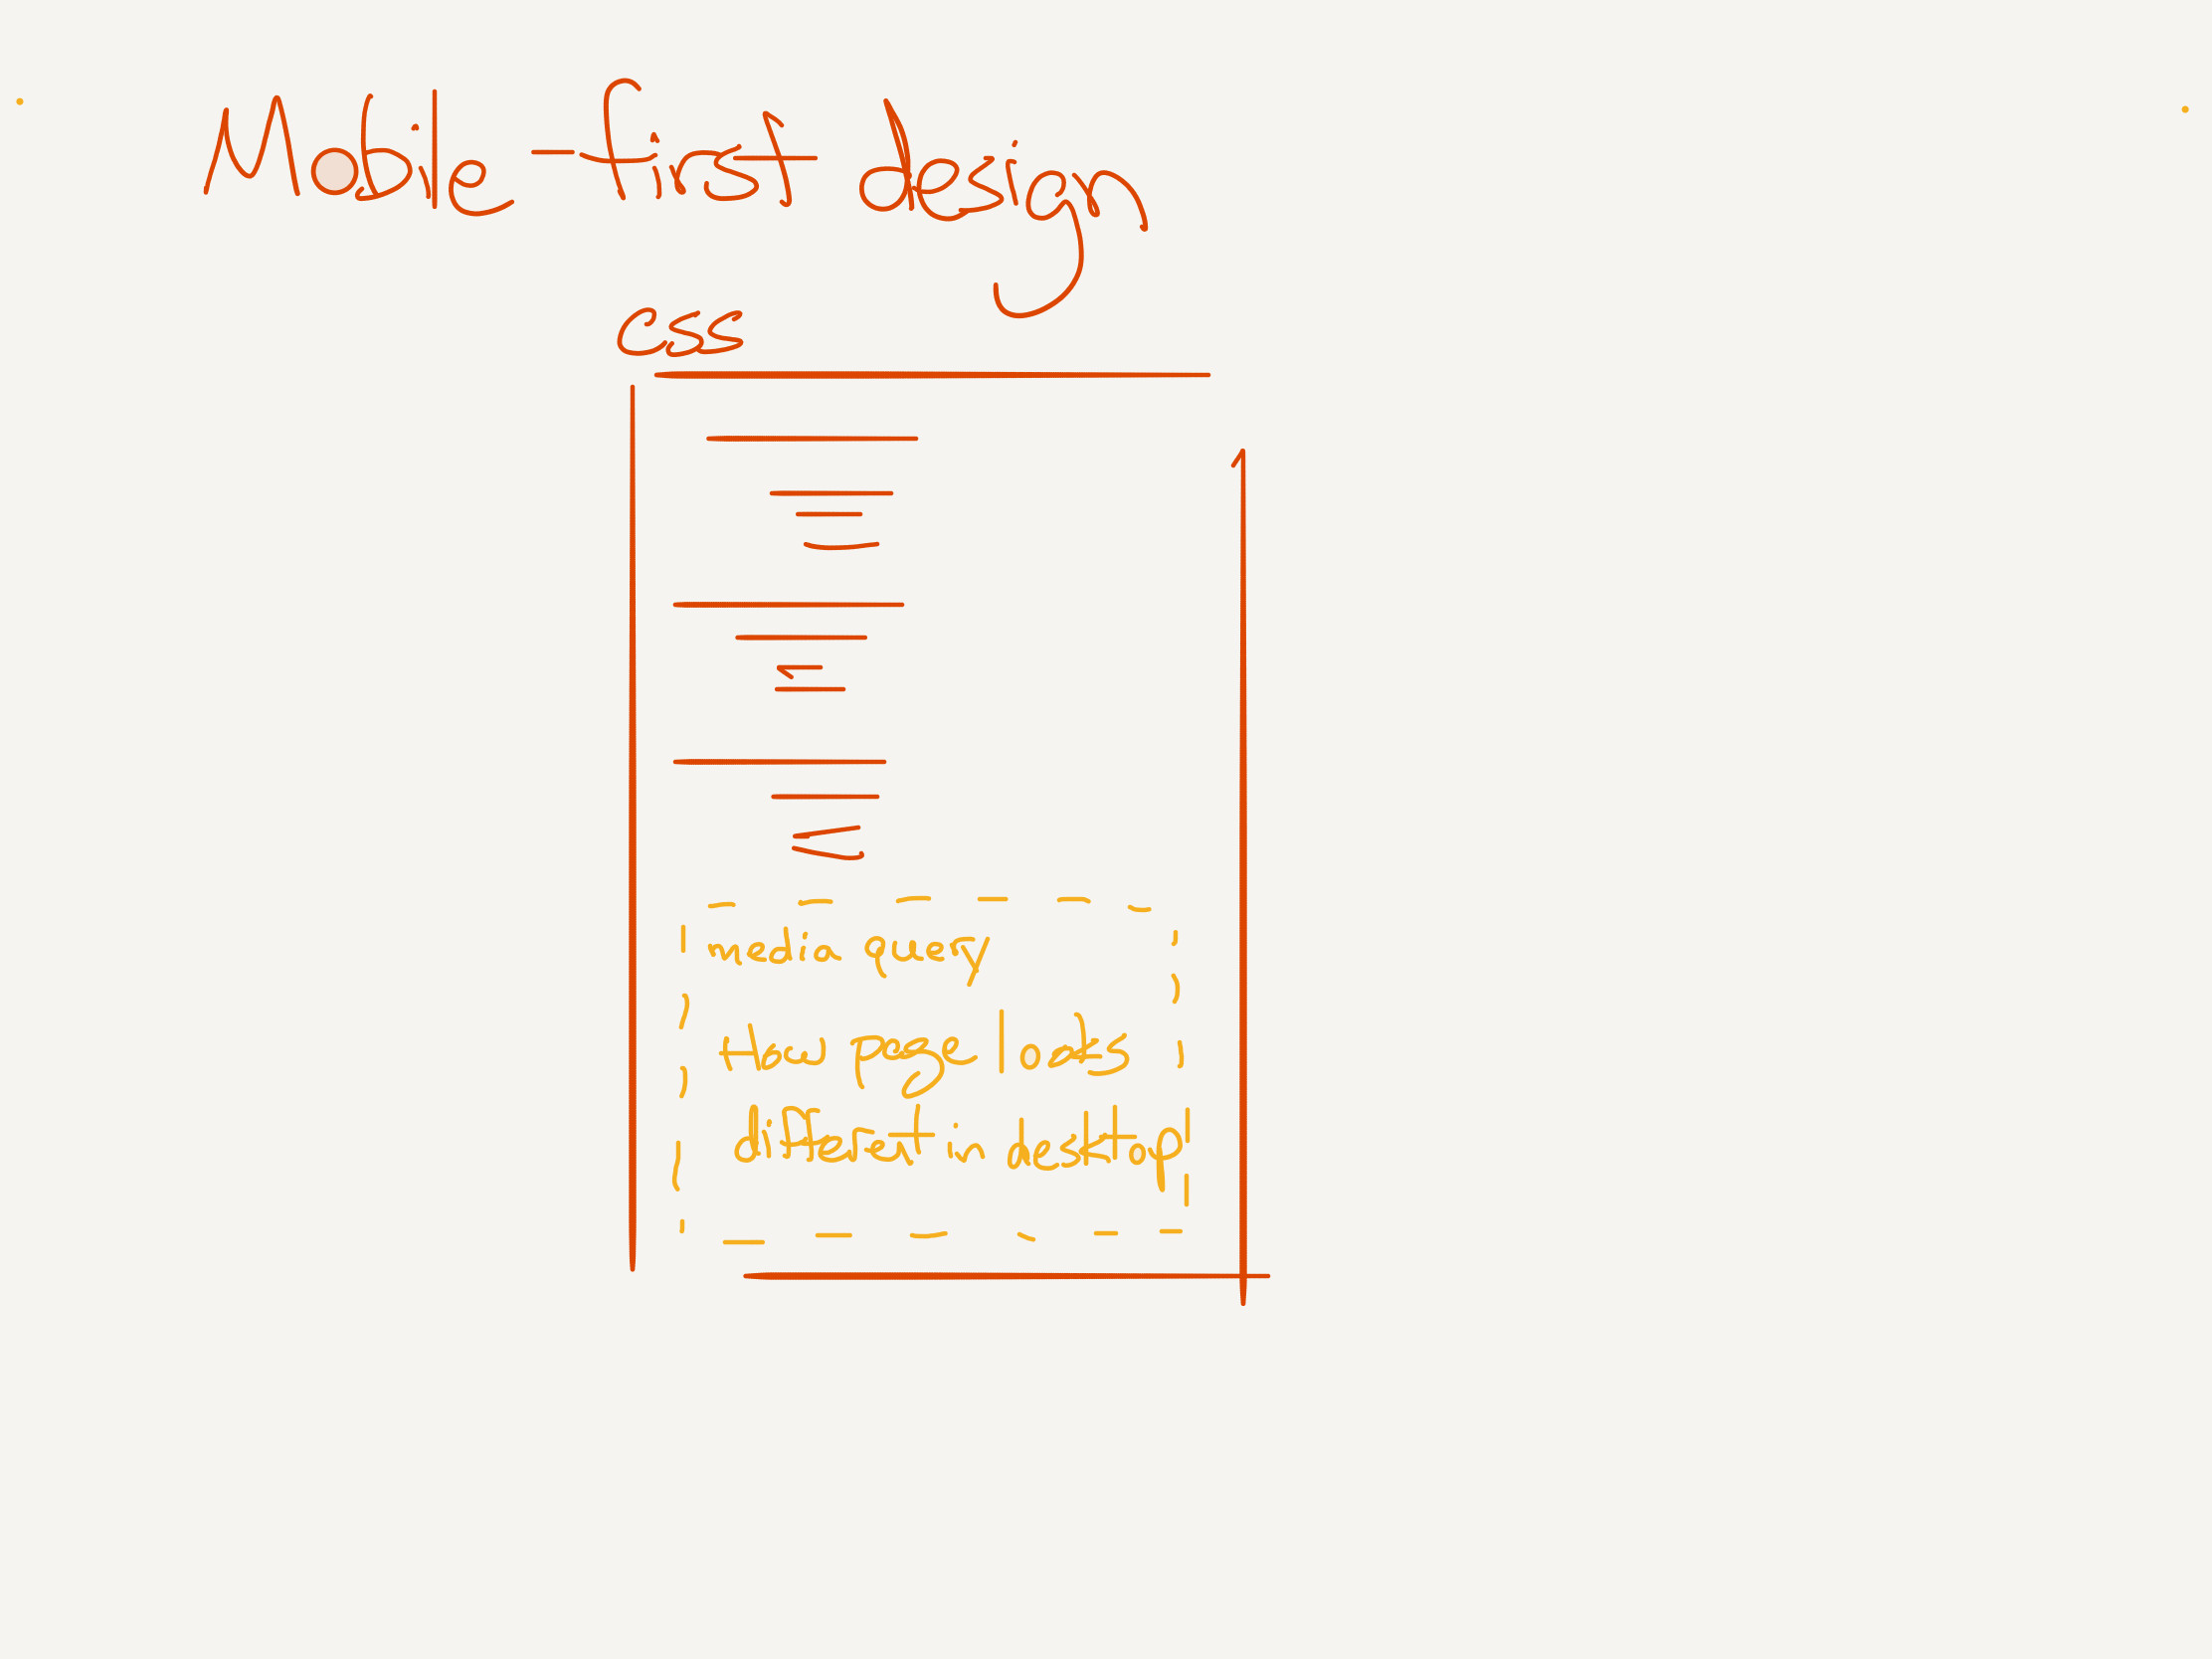 Mobile-first design
css
media query
How page looks
different in desktop